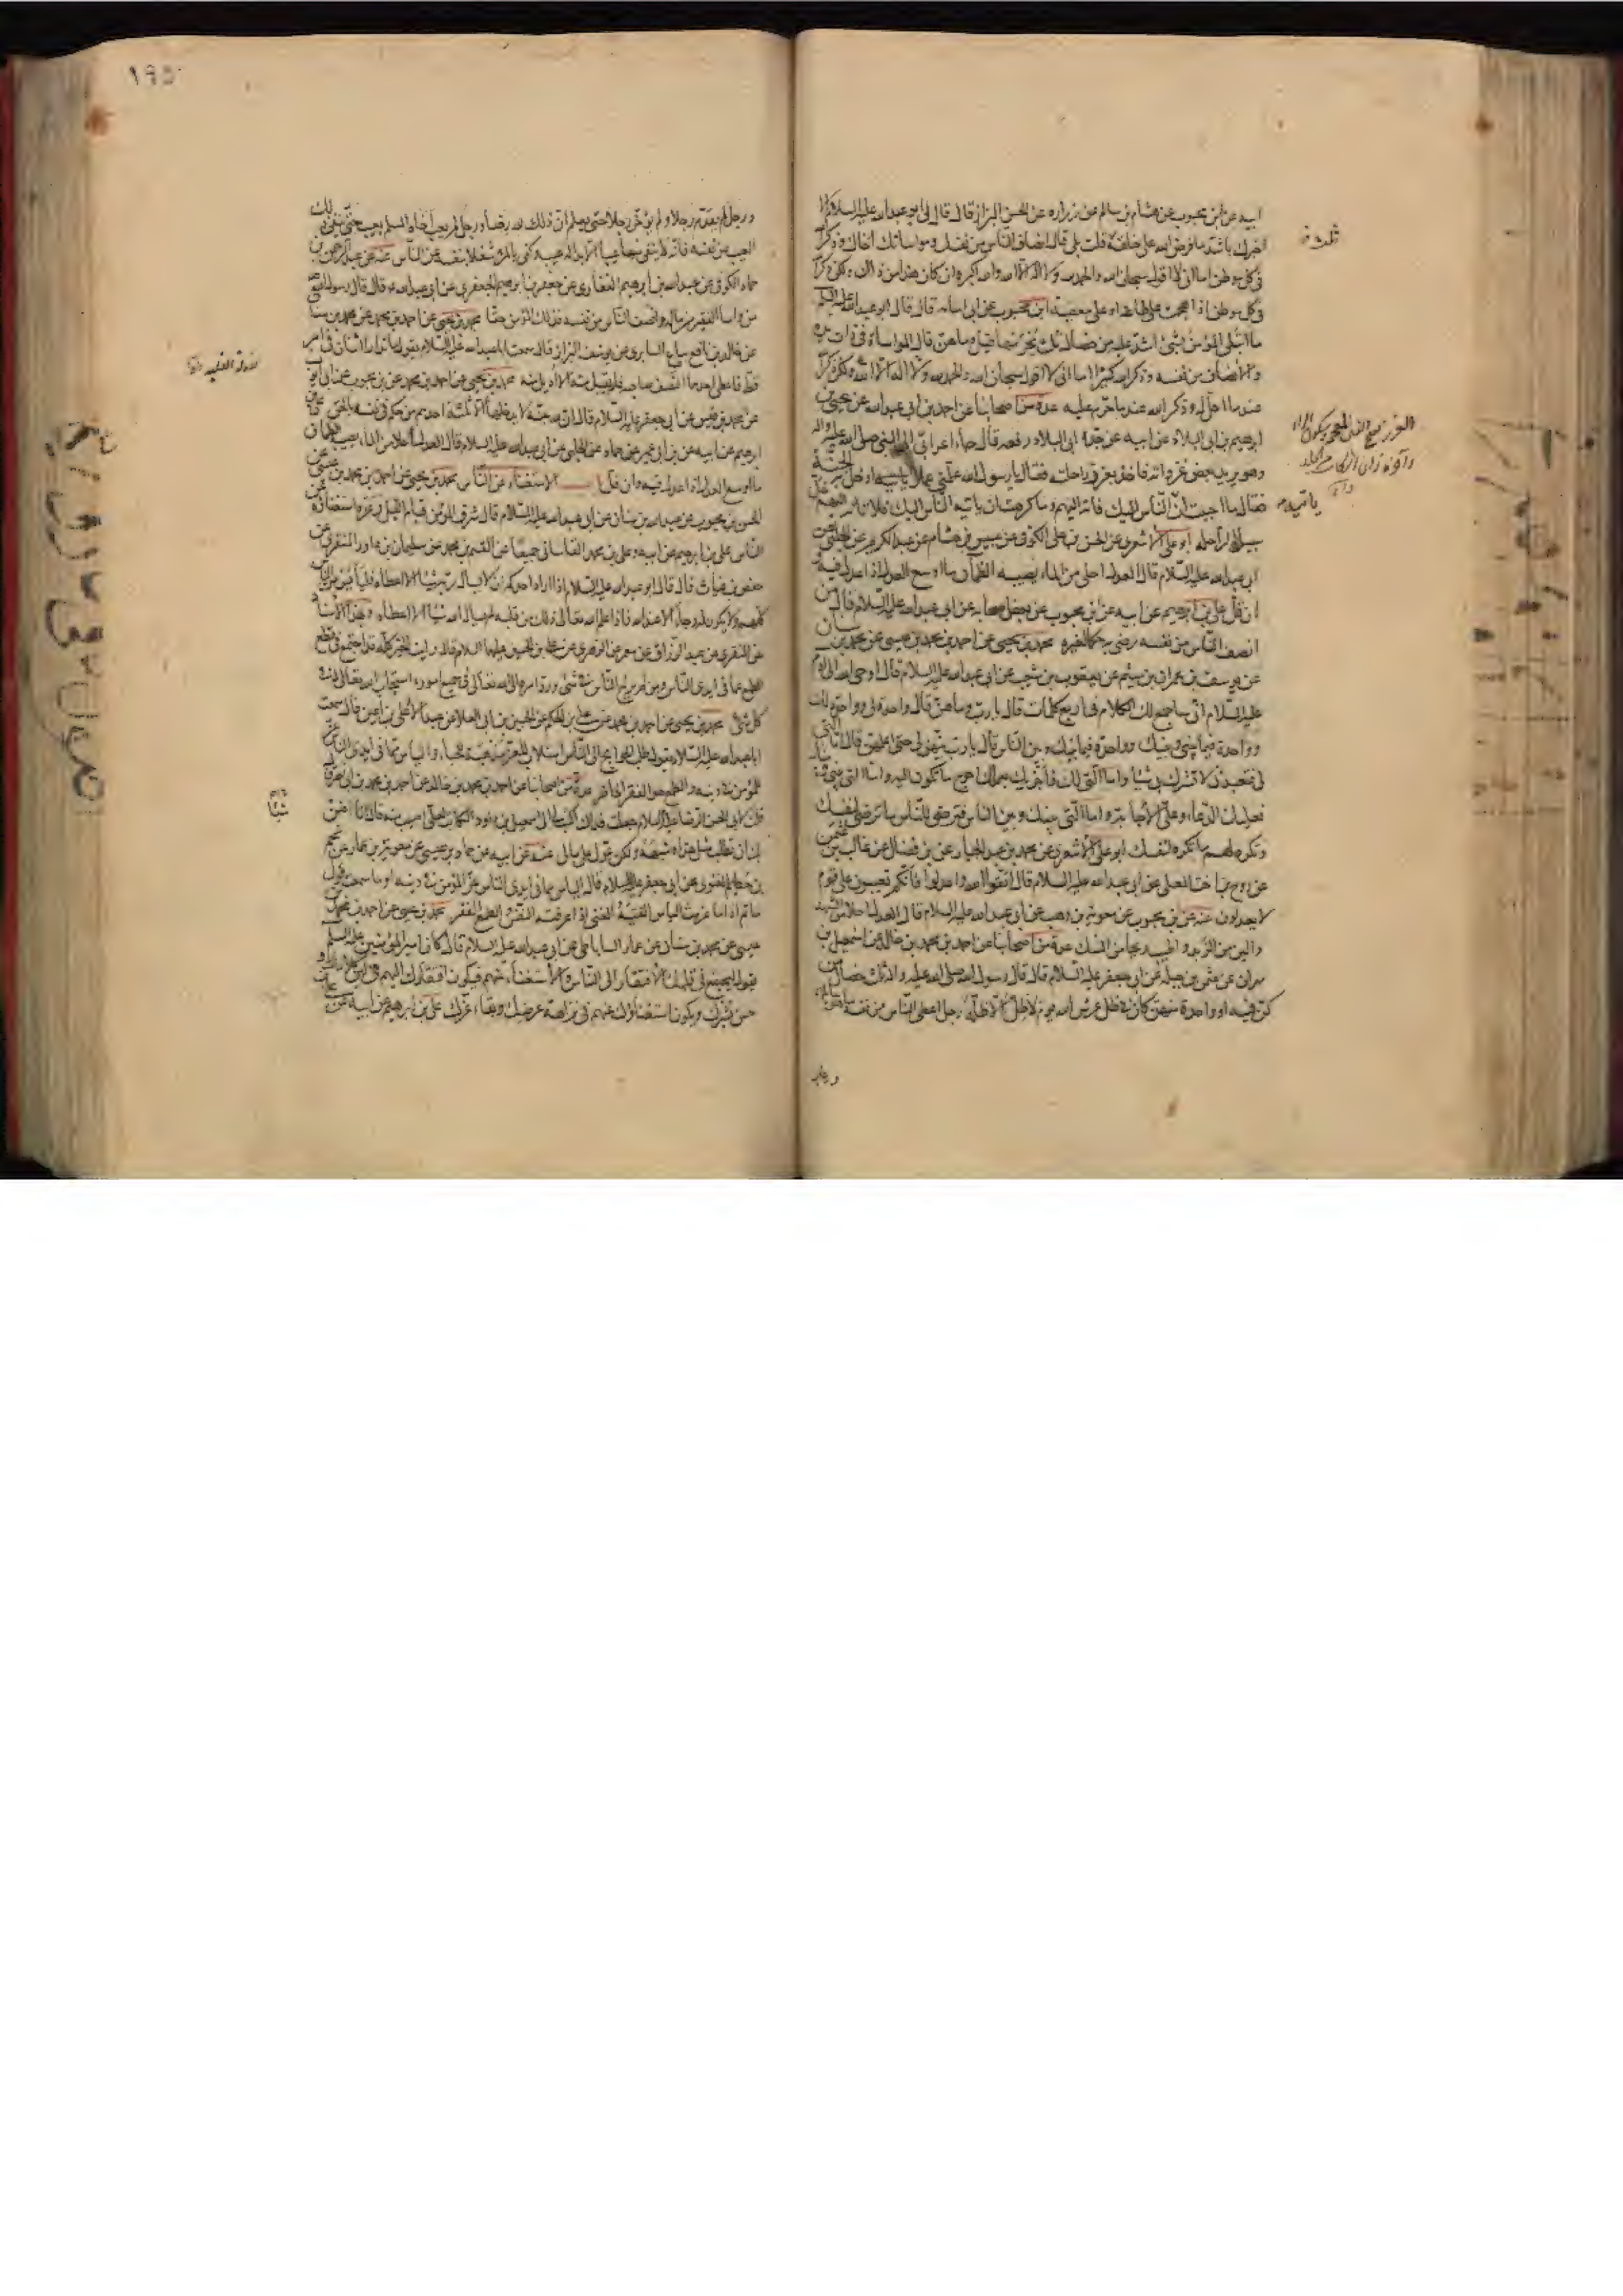 ابيه عن ابن محبوب عن هشام بن سالم عن زراره عن الحسن البزاز قال قال لى ابو عبد الله عليه السلام الا
اخبرك باشد ما فرض الله على خلقه ثلث قلت بلى قال انصاف الناس من نفسك ومواساتك اخاك وذكر الله
فى كل موطن اما انى لا اقول سبحان الله والحمد لله ولا اله الا الله والله اكبر وان كان هذا من ذاك ولكن ذكر الله
فى كل موطن اذا هجمت على طاعة او على معصية ابن محبوب عن ابى اسامه قال قال ابو عبد الله عليه السلام
ما ابتلى المؤمن بشئ اشد عليه من خصال ثلث يحرمها قيل وما هن قال المواساة فى ذات يده
والانصاف من نفسه وذكر الله كثيرا اما انى لا اقول سبحان الله والحمد لله ولا اله الا الله ولكن ذكر الله
عند ما احل له وذكر الله عند ما حرم عليه عدة من اصحابنا عن احمد بن ابى عبد الله عن يحيى بن
ابرهيم بن ابى البلاد عن ابيه عن جده ابى البلاد رفعه قال جاء اعرابى الى النبى صلى الله عليه واله
وهو يريد بعض غزواته فاخذ بغرز راحلته فقال يا رسول الله علمنى عملا ادخل به الجنة
فقال ما احببت ان ياتيه الناس اليك فاته اليهم وما كرهت ان ياتيه الناس اليك فلا تاته اليهم خل
سبيل الراحله ابو على الاشعرى عن الحسن بن على الكوفى عن عبيس بن هشام عن عبد الكريم عن الحلبى عن
ابى عبد الله عليه السلام قال العدل احلى من الماء يصيبه الظمآن ما اوسع العدل اذا عدل فيه
ان قل على بن ابرهيم عن ابيه عن ابن محبوب عن بعض اصحابه عن ابى عبد الله عليه السلام قال من
انصف الناس من نفسه رضى به حكما لغيره محمد بن يحيى عن احمد بن محمد بن عيسى عن محمد بن سنان
عن يوسف بن عمران بن ميثم عن يعقوب بن شعيب عن ابى عبد الله عليه السلام قال اوحى الله الى ادم
عليه السلام انى ساجمع لك الكلام فى اربع كلمات قال يا رب وما هن قال واحدة لى وواحدة لك
وواحدة فيما بينى وبينك وواحدة فيما بينك وبين الناس قال يا رب بينهن لى حتى اعلمهن قال اما التى
لى فتعبدنى لا تشرك بى شيئا واما التى لك فاجزيك بعملك احوج ما تكون اليه واما التى بينى وبينك
فعليك الدعاء وعلى الاجابة واما التى بينك وبين الناس فترضى للناس ما ترضى لنفسك
وتكره لهم ما تكره لنفسك ابو على الاشعرى عن محمد بن عبد الجبار عن ابن فضال عن غالب بن عثمن
عن روح ابن اخت المعلى عن ابى عبد الله عليه السلام قال اتقوا الله واعدلوا فانكم تعيبون على قوم
لا يعدلون عنه عن ابن محبوب عن معوية بن وهب عن ابى عبد الله عليه السلام قال العدل احلى من الشهد
والين من الزبد واطيب ريحا من المسك عدة من اصحابنا عن احمد بن محمد بن خالد عن اسمعيل بن
مهران عن عثمن بن جبله عن ابى جعفر عليه السلام قال قال رسول الله صلى الله عليه واله ثلث خصال من
كن فيه او واحدة منهن كان فى ظل عرش الله يوم لا ظل الا ظله رجل اعطى الناس من نفسه ما هو سائلهم
ورجل
ثلث
الغرز بفتح الغين المعجمة وسكون الراء
ياتيه
١٩٥
ورجل لم يقدم رجلا ولم يؤخر رجلا حتى يعلم ان ذلك لله رضا ورجل لم يعب اخاه المسلم بعيب حتى ينفى ذلك
العيب عن نفسه فانه لا ينفى منها عيبا الا بدا له عيب وكفى بالمرء شغلا بنفسه عن الناس عنه عن عبد الرحمن بن
حماد الكوفى عن عبد الله بن ابرهيم الغفارى عن جعفر بن ابرهيم الجعفرى عن ابى عبد الله ع قال قال رسول الله ص
من واسا الفقير من ماله وانصف الناس من نفسه فذلك المؤمن حقا محمد بن يحيى عن احمد بن محمد عن محمد بن سنان
عن خالد بن نافع بياع السابرى عن يوسف البزاز قال سمعت ابا عبد الله عليه السلام يقول ما تدارا اثنان فى امر
قط فاعطى احدهما النصف صاحبه فلم يقبل منه الا اديل منه محمد بن يحيى عن احمد بن محمد عن ابن محبوب عن ابى ايوب
عن محمد بن قيس عن ابى جعفر عليه السلام قال ان لله جنة لا يدخلها الا ثلثة احدهم من حكم فى نفسه بالحق على بن
ابرهيم عن ابيه عن ابن ابى عمير عن حماد عن الحلبى عن ابى عبد الله عليه السلام قال العدل احلى من الماء يصيبه الظمآن
ما اوسع العدل اذا عدل فيه وان قل باب الاستغناء عن الناس محمد بن يحيى عن احمد بن محمد بن عيسى عن
الحسن بن محبوب عن عبد الله بن سنان عن ابى عبد الله عليه السلام قال شرف المؤمن قيام الليل وعزه استغناؤه عن
الناس على بن ابرهيم عن ابيه وعلى بن محمد القاسانى جميعا عن القسم بن محمد عن سليمان بن داود المنقرى عن
حفص بن غياث قال قال ابو عبد الله عليه السلام اذا اراد احدكم ان لا يسال ربه شيئا الا اعطاه فليايس من الناس
كلهم ولا يكون له رجاء الا عند الله فاذا علم الله تعالى ذلك من قلبه لم يسال الله شيئا الا اعطاه وبهذا الاسناد
عن المنقرى عن عبد الرزاق عن معمر عن الزهرى عن على بن الحسين عليهما السلام قال رايت الخير كله قد اجتمع فى قطع
الطمع عما فى ايدى الناس ومن لم يرج الناس فى شئ ورد امره الى الله تعالى فى جميع اموره استجاب الله تعالى له فى
كل شئ محمد بن يحيى عن احمد بن محمد عن على بن الحكم عن الحسين بن ابى العلا عن عبد الاعلى بن اعين قال سمعت
ابا عبد الله عليه السلام يقول طلب الحوايج الى الناس استلاب للعز ومذهبة للحياء والياس مما فى ايدى الناس عز
للمؤمن فى دينه والطمع هو الفقر الحاضر عدة من اصحابنا عن احمد بن محمد بن خالد عن احمد بن محمد بن ابى نصر قال
قلت لابى الحسن الرضا عليه السلام جعلت فداك اكتب لى الى اسمعيل بن داود الكاتب لعلى اصيب منه قال انا اضن
بك ان تطلب مثل هذا وشبهه ولكن عول على مالى عنه عن ابيه عن حماد بن عيسى عن معوية بن عمار عن نجم
بن حطيم الغنوى عن ابى جعفر عليه السلام قال الياس مما فى ايدى الناس عز المؤمن فى دينه او ما سمعت قول
حاتم اذا ما عزمت الياس الفيته الغنى اذا عرفته النفس والطمع الفقر محمد بن يحيى عن احمد بن محمد بن
عيسى عن محمد بن سنان عن عمار الساباطى عن ابى عبد الله عليه السلام قال كان امير المؤمنين عليه السلم
يقول ليجتمع فى قلبك الافتقار الى الناس والاستغناء عنهم فيكون افتقارك اليهم فى لين كلامك و
حسن بشرك ويكون استغناؤك عنهم فى نزاهة عرضك وبقاء عزك على بن ابرهيم عن ابيه عن